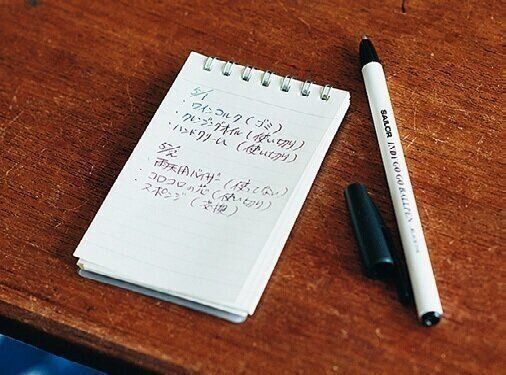 5/1
・ワインコルク(ゴミ)
・クレンジングオイル(使い切り)
・ハンドクリーム(使い切り)
5/2
・雨天用バイザー(使ってない)
・コロコロの芯(使い切り)
スポンジ(交換)
SAILOR INDI GO GO BALLPEN